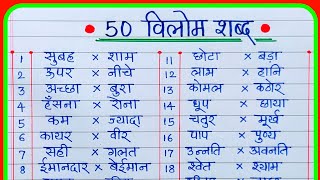 50 विलोम शब्द
1 सुबह × शाम 11 छोटा × बड़ा
2 ऊपर × नीचे 12 लाभ × हानि
3 अच्छा × बुरा 13 कोमल × कठोर
4 हँसना × रोना 14 धूप × छाया
5 कम × ज्यादा 15 चतुर × मूर्ख
6 कायर × वीर 16 पाप × पुण्य
7 सही × गलत 17 उन्नति × अवनति
8 ईमानदार × बेईमान 18 श्वेत × श्याम